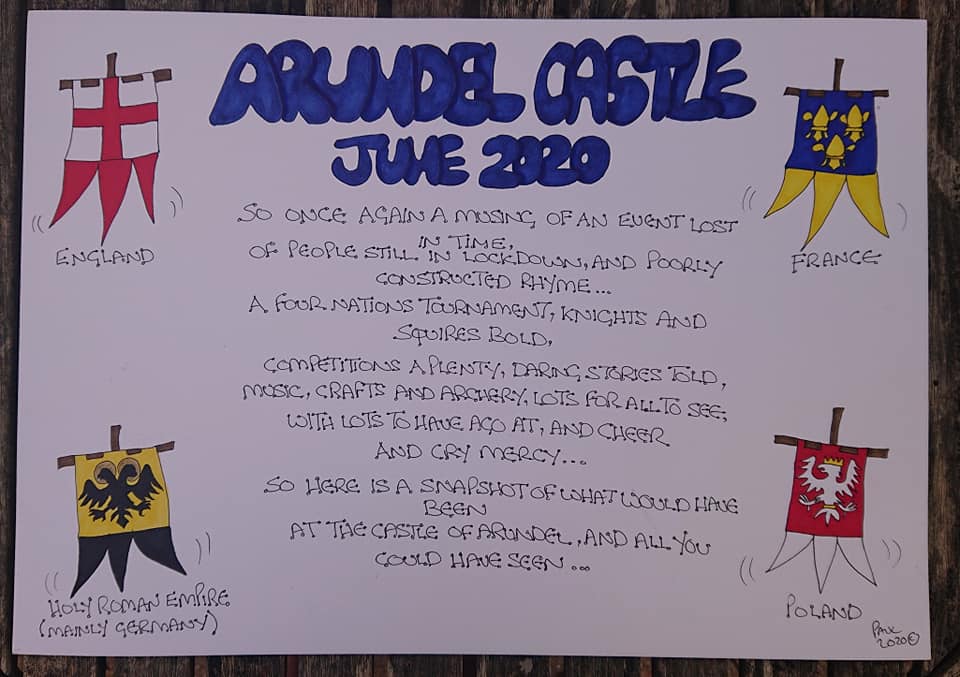 ARUNDEL CASTLE
JUNE 2020
SO ONCE AGAIN A MUSING OF AN EVENT LOST
IN TIME,
OF PEOPLE STILL IN LOCKDOWN, AND POORLY
CONSTRUCTED RHYME...
A FOUR NATIONS TOURNAMENT, KNIGHTS AND
SQUIRES BOLD,
COMPETITIONS A PLENTY, DARING STORIES TOLD,
MUSIC, CRAFTS AND ARCHERY, LOTS FOR ALL TO SEE,
WITH LOTS TO HAVE A GO AT, AND CHEER
AND CRY MERCY...
SO HERE IS A SNAPSHOT OF WHAT WOULD HAVE
BEEN
AT THE CASTLE OF ARUNDEL, AND ALL YOU
COULD HAVE SEEN...
ENGLAND
FRANCE
HOLY ROMAN EMPIRE
(MAINLY GERMANY)
POLAND
2020©